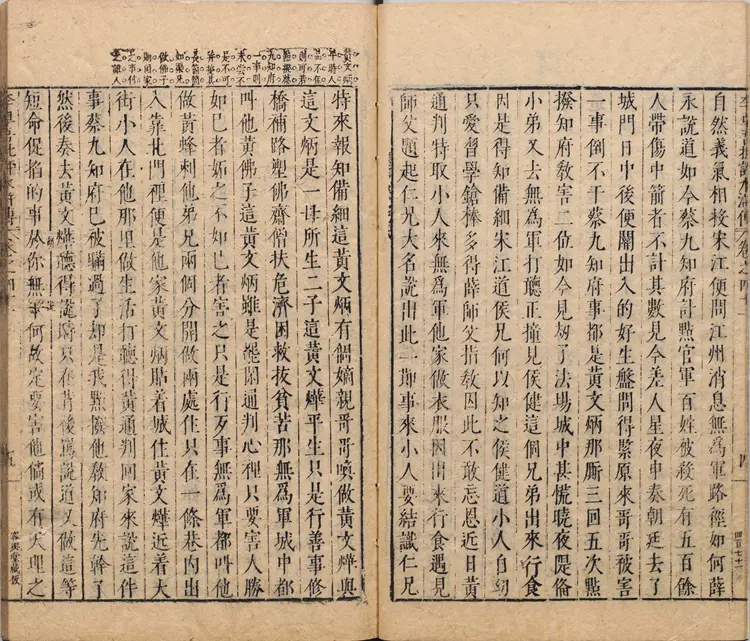 自然義氣相投宋江便問江州消息無爲軍路徑如何薛
永說道如今蔡九知府計點官軍百姓被殺死有五百餘
人帶傷中箭者不計其數見今差人星夜申奏朝廷去了
城門日中後便關出入的好生盤問得緊原來哥哥被害
一事倒不干蔡九知府事都是黃文炳那厮三回五次點
撥知府教害二位如今見刼了法場城中甚慌曉夜隄備
小弟又去無爲軍打聽正撞見侯健這個兄弟出來行食
因是得知備細宋江道侯兄何以知之侯健道小人自幼
只愛習學鎗棒多得薛師父指教因此不敢忘恩近日黃
通判特取小人來無爲軍他家做衣服因出來行食遇見
師父題起仁兄大名說出此一節事來小人要結識仁兄
四百七十一
黃文炳
平時人
品不佳
則可若
點撥蔡
九知府
一事則
未嘗不
是不可
做佛子
特來報知備細這黃文炳有個嫡親哥哥喚做黃文燁與
這文炳是一母所生二子這黃文燁平生只是行善事修
橋補路塑佛齋僧扶危濟困救拔貧苦那無爲軍城中都
叫他黃佛子這黃文炳雖是罷閑通判心裡只要害人勝
如己者妬之不如己者害之只是行歹事無爲軍都叫他
做黃蜂刺他弟兄兩個分開做兩處住只在一條巷內出
入靠北門裡便是他家黃文炳貼着城住黃文燁近着大
街小人在他那里做生活打聽得黃通判回家來說這件
事蔡九知府已被瞞過了却是我點撥他教知府先斬了
然後奏去黃文燁聽得說時只在背後罵說道又做這等
短命促掐的事於你無干何故定要害他倘或有天理之
容與堂藏板